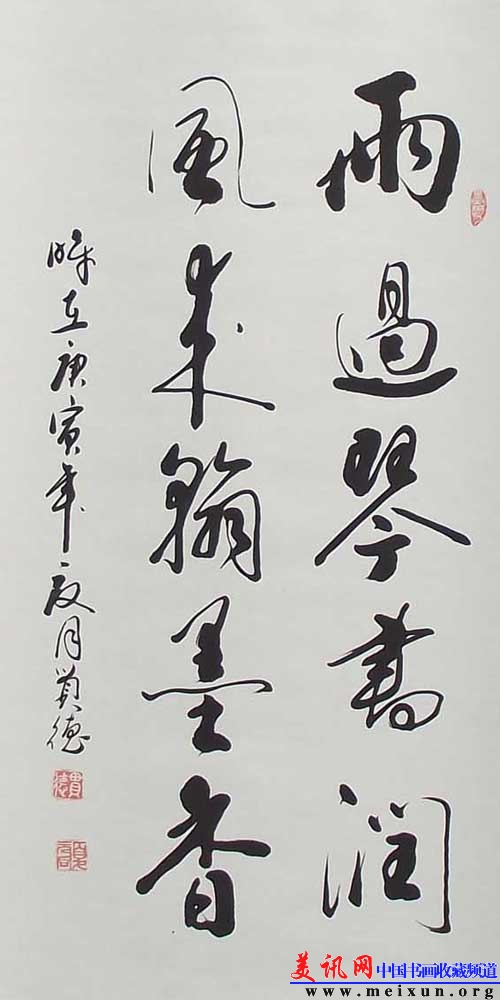 雨過琴書潤
風來翰墨香
時在庚寅年夏月賢德
美讯网 中国书画收藏频道
www.meixun.org